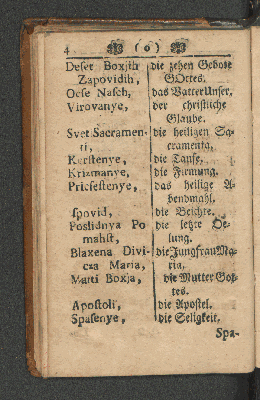 4 ( o )
Deset Boxjih die zehen Gebote
Zapovidih, GOttes.
Ocse Nasch, das Vatter Unser,
Virovanye, der christliche
Glaube.
Svet Sacramen- die heiligen Sa-
ti, cramenta,
Kerstenye, die Tauffe.
Krizmanye, die Firmung.
Pricsestenye, das heilige A-
bendmahl.
spovid, die Beichte.
Poslidnya Po die letzte Oe-
mahst, lung.
Blaxena Divi- die Jungfrau Ma-
cza Maria, ria,
Mati Boxja, die Mutter Got-
tes.
Apostoli, die Apostel.
Spasenye, die Seligkeit.
Spa-